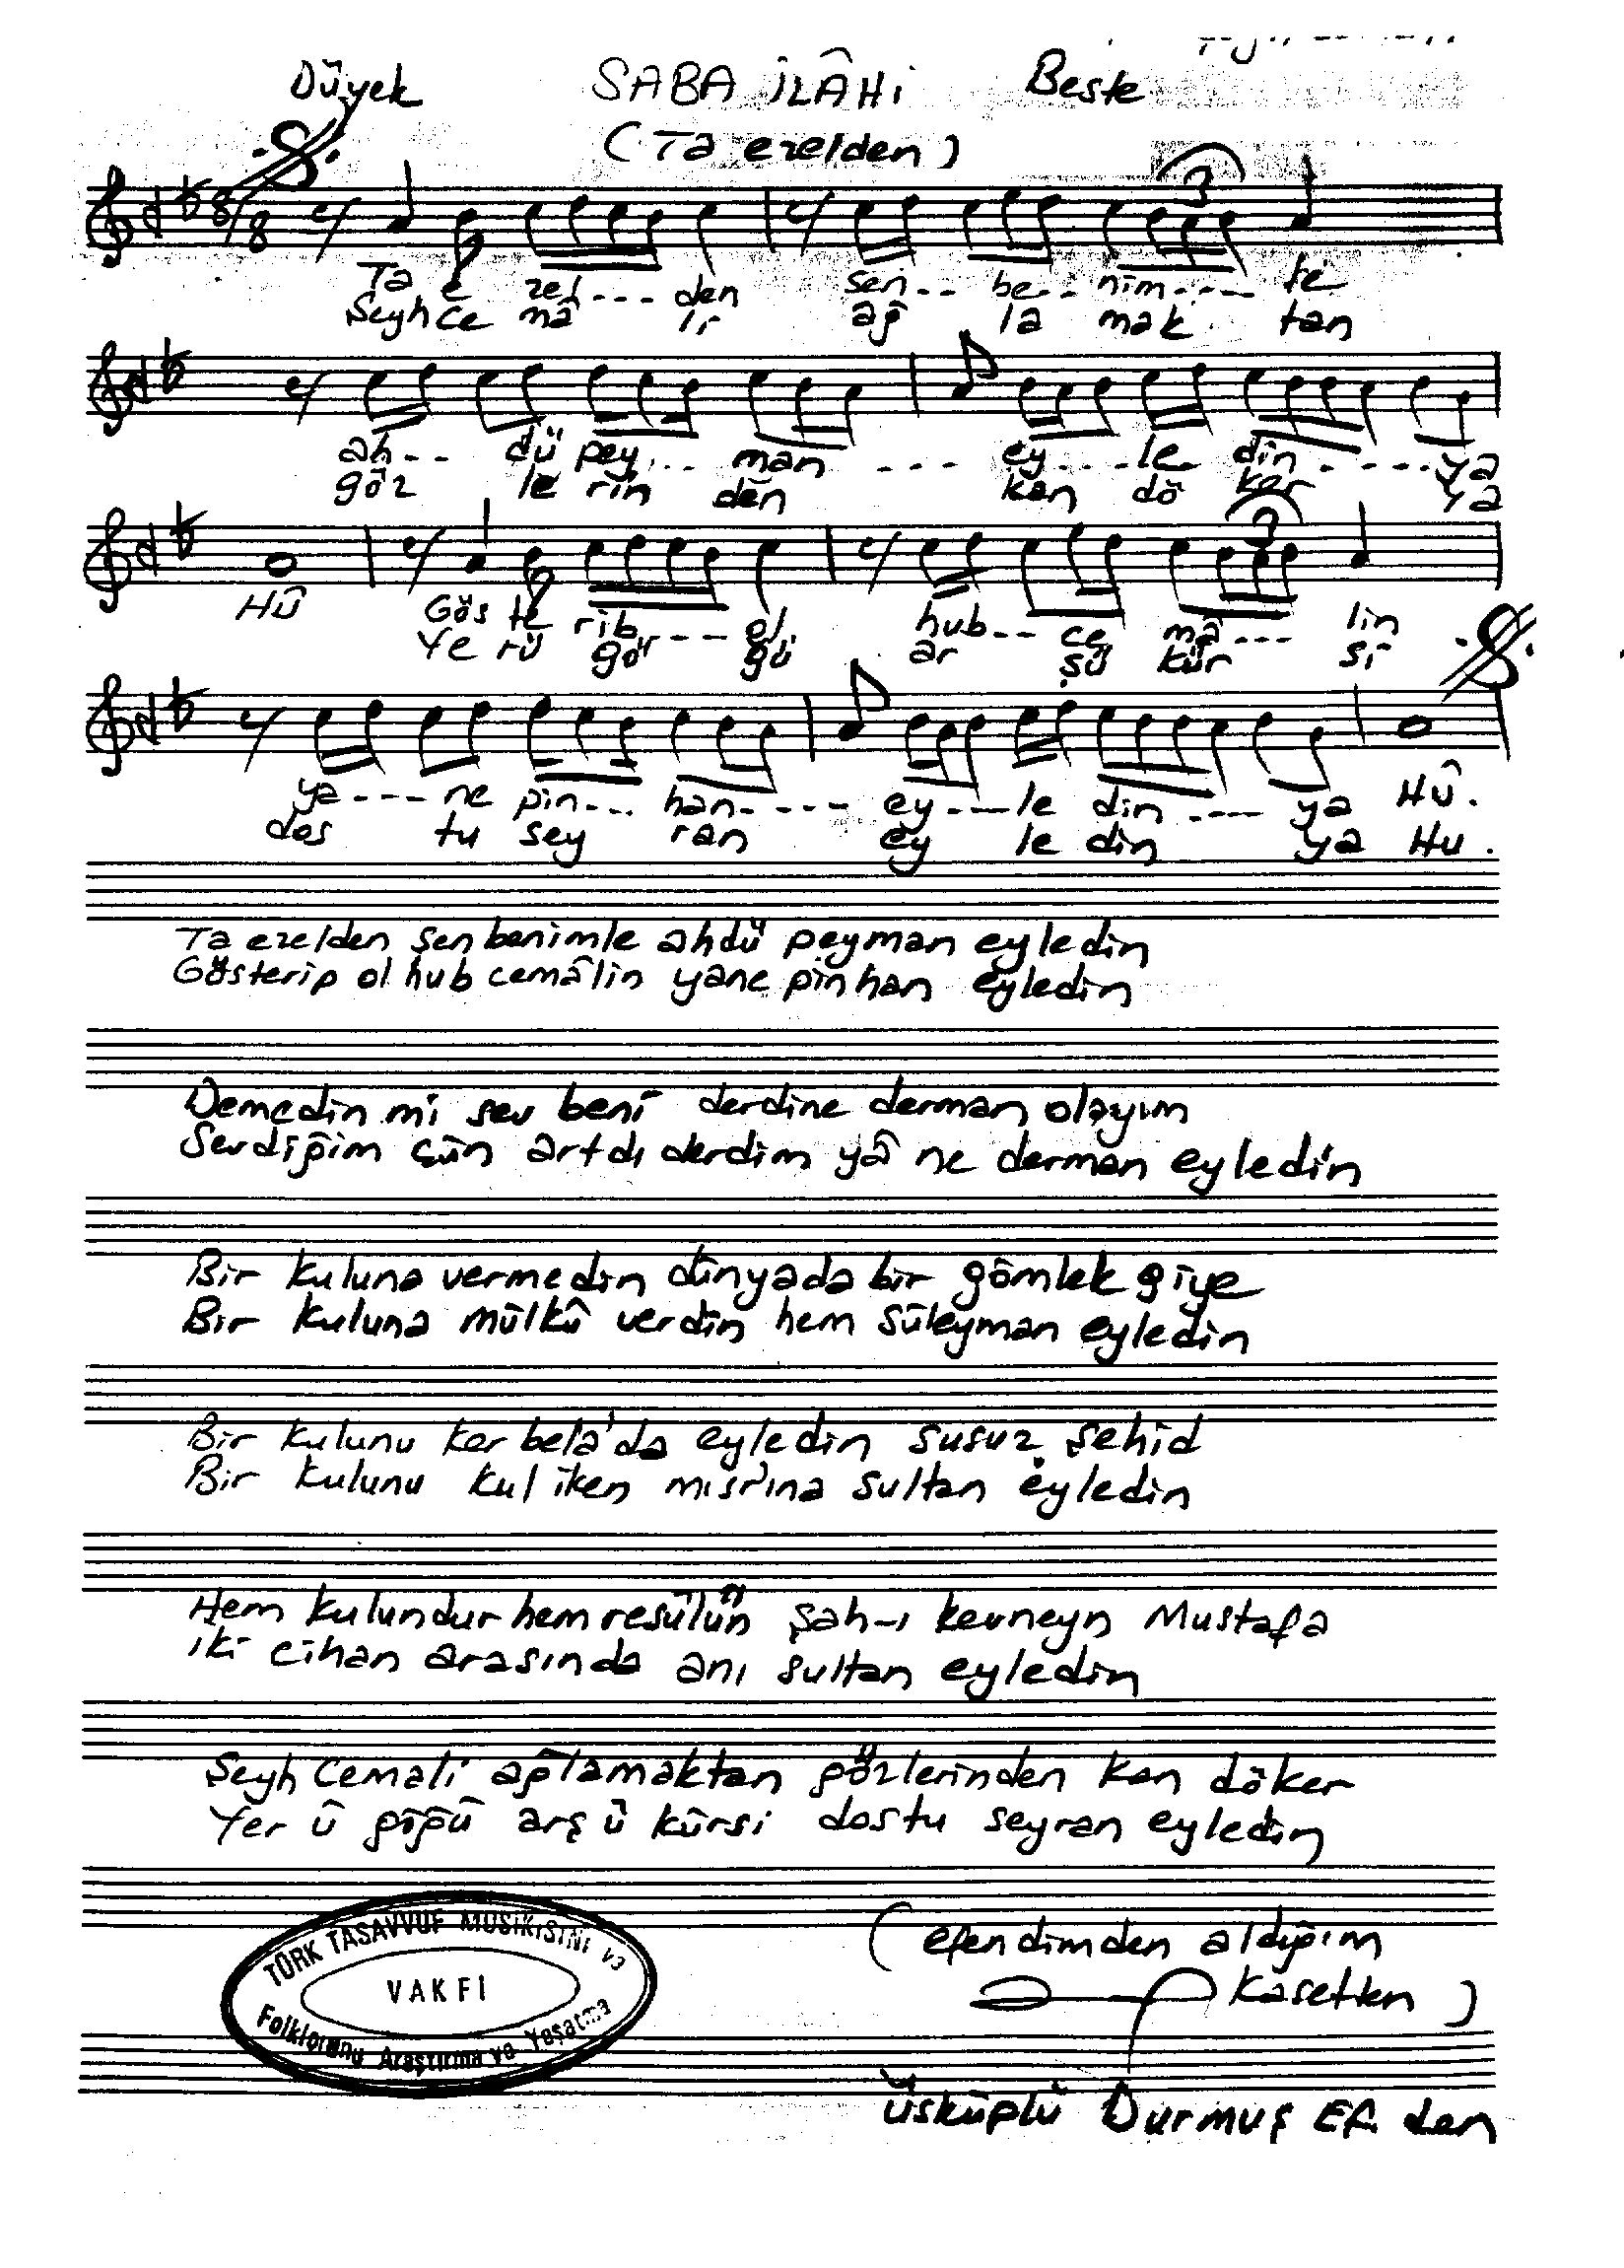 Düyek SABA İLÂHİ Beste
(Ta ezelden)
8/8
3
Ta e zel---den sen-- be-- nim---- le
Şeyh Ce mâ lı ağ la mak tan
ah-- dü pey--- man ---- ey----le din-----ya
göz le rin den kan dö ker ya
3
HÛ Gös te rib---- ol hub-- ce mâ--- lin
Ye rü gö gü ar şü kür si
ya----ne pin--- han----- ey----le din ---- ya HÛ.
dos tu sey ran ey le din ya Hu.
Ta ezelden sen benimle ahdü peyman eyledin
Gösterip ol hub cemâlin yane pinhan eyledin
Demedin mi sev beni derdine derman olayım
Sevdiğim çün artdı derdim yâ ne derman eyledin
Bir kuluna vermedin dünyada bir gömlek giye
Bir kuluna mülkü verdin hem süleyman eyledin
Bir kulunu kerbelâ'da eyledin susuz şehid
Bir kulunu kul iken mısr'ına sultan eyledin
Hem kulundur hem resûlün şah-ı kevneyn Mustafa
iki cihan arasında anı sultan eyledin
Şeyh Cemali ağlamaktan gözlerinden kan döker
Yer ü göğü arş ü kürsi dostu seyran eyledin
TÜRK TASAVVUF MUSiKiSiNi ve
VAKFI
Folklorunu Araştırma ve Yaşatma
(efendimden aldığım
kasetten)
Üsküplü Durmuş Ef. den